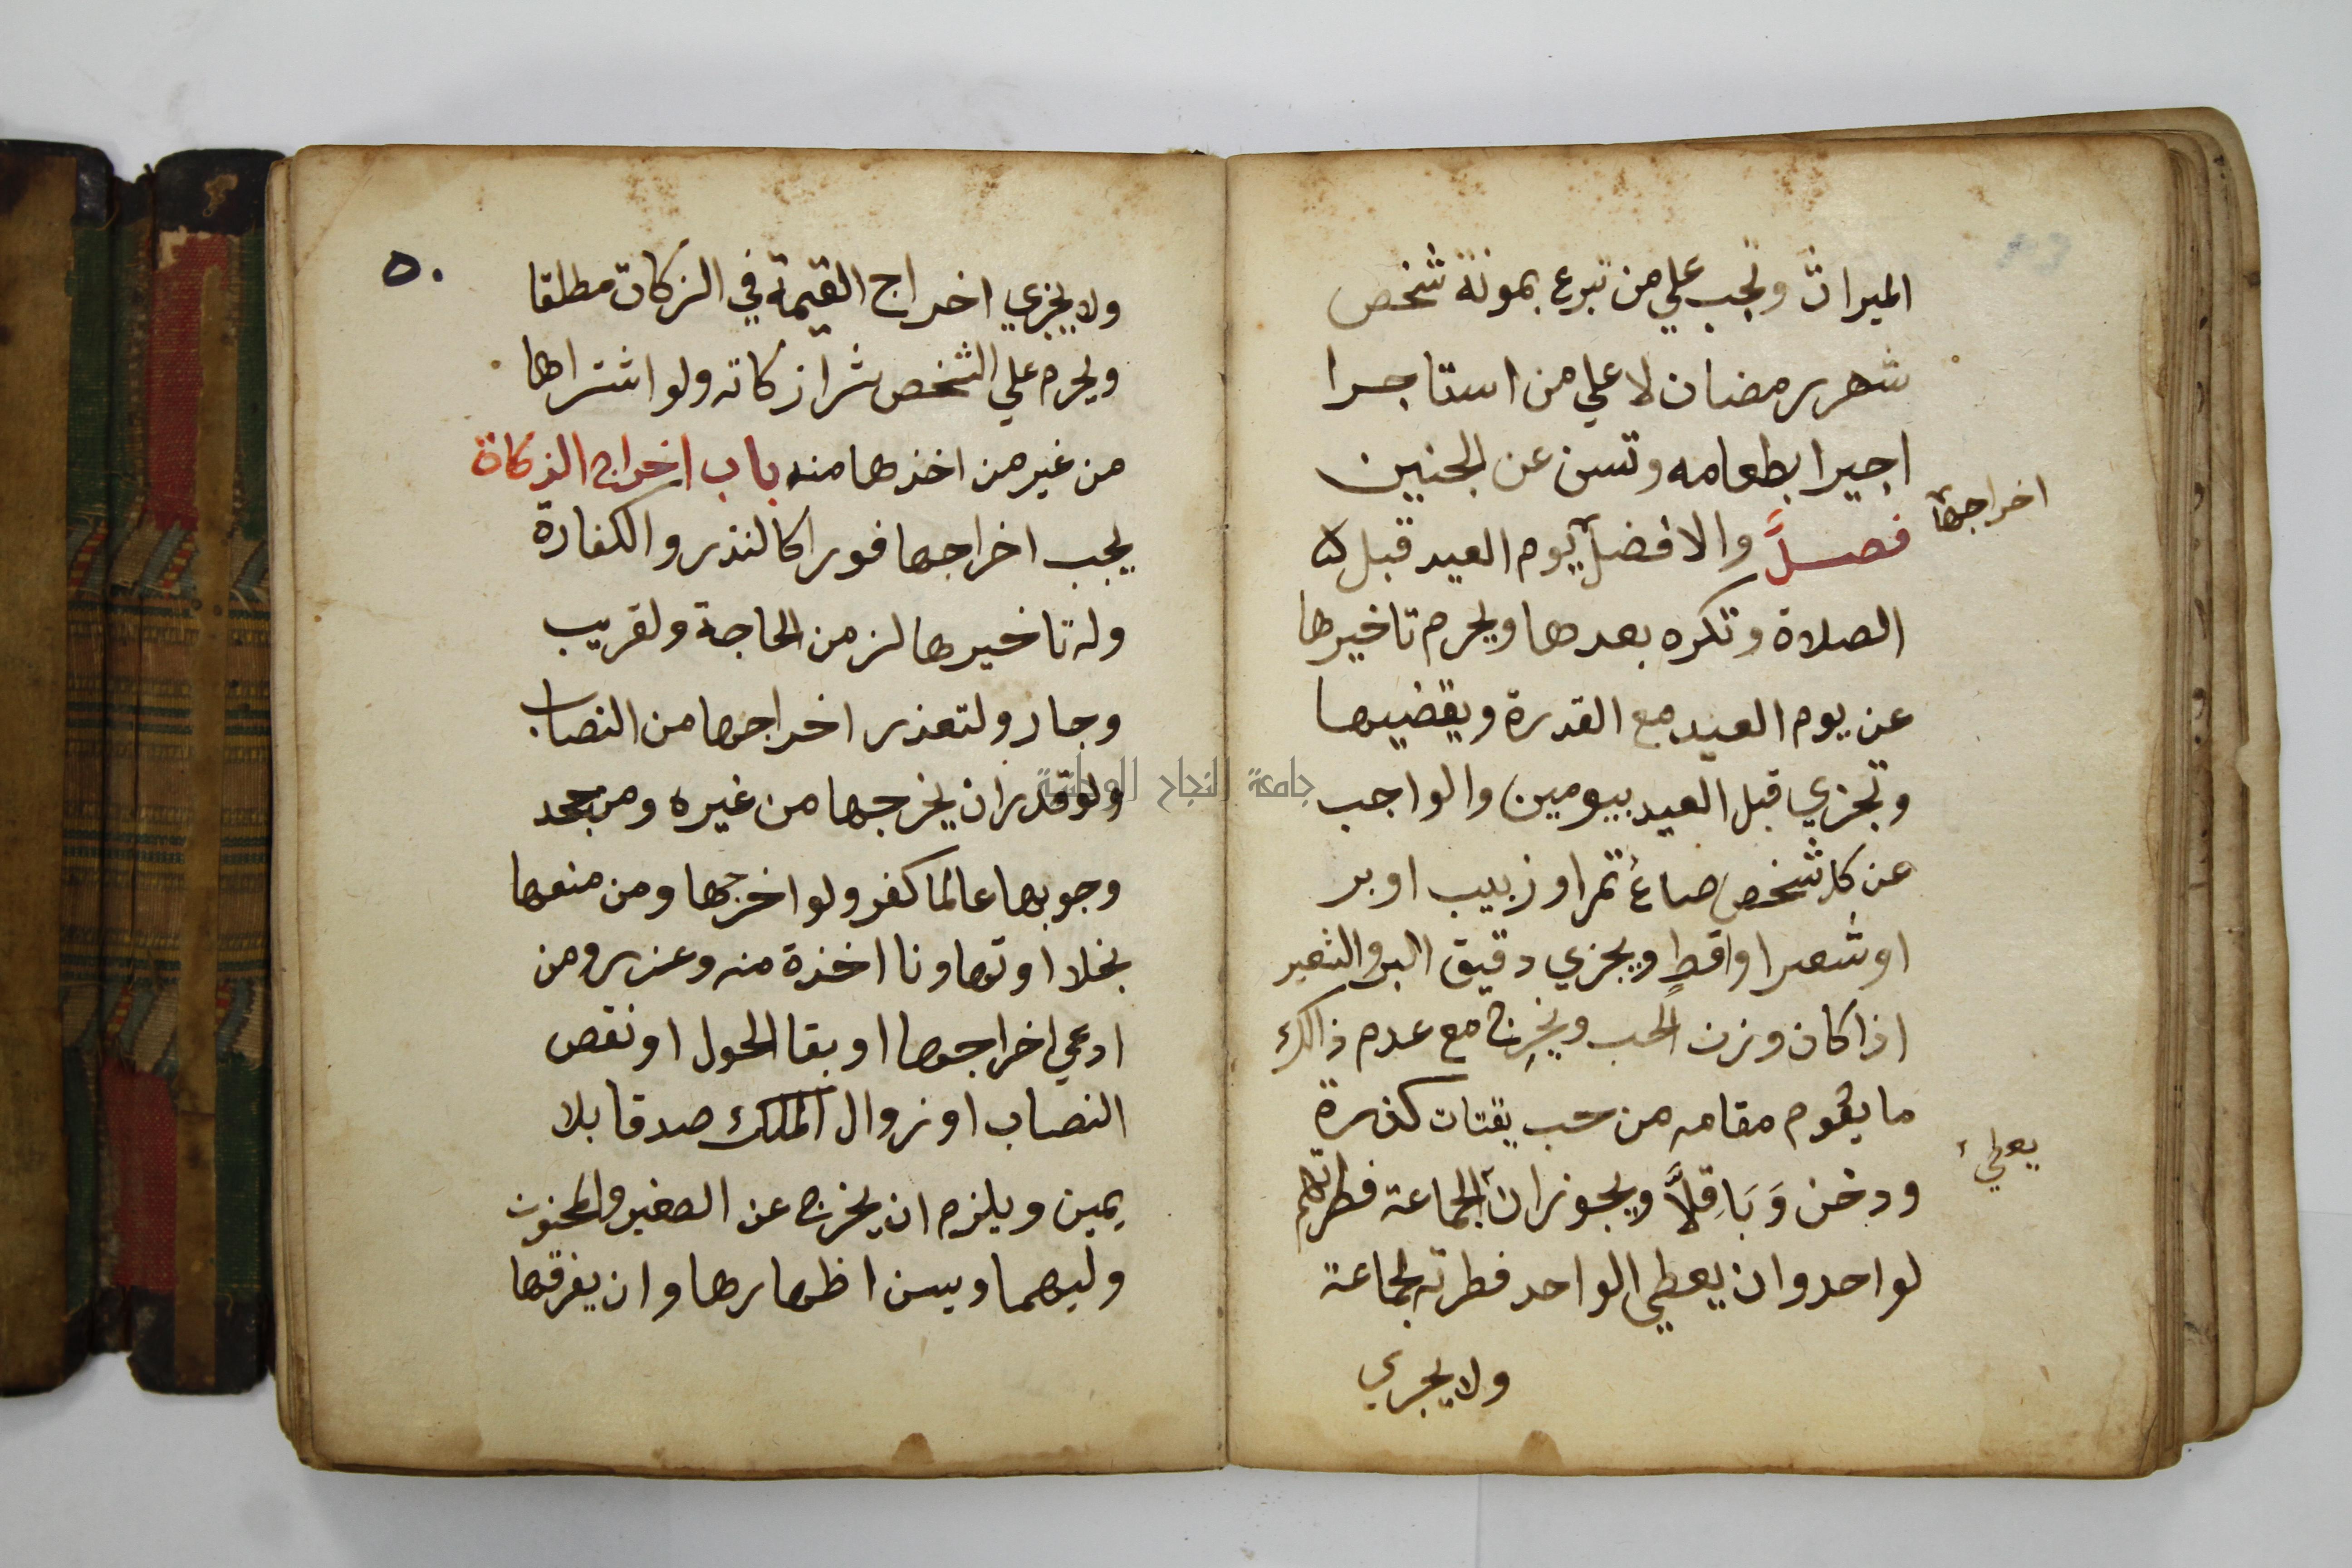 الميراث وتجب علي من تبرع بمونة شخص
شهر رمضان لا علي من استاجرا
اجيرا بطعامه وتسن عن الجنين
اخراجها
فصل والافضل يوم العيد قبل
الصلاة وتكره بعدها ويحرم تاخيرها
عن يوم العيد مع القدرة ويقضيها
وتجزي قبل العيد بيومين والواجب
عن كل شخص صاع تمر او زبيب او بر
او شعير او اقط ويجزي دقيق البر والشعير
اذا كان وزن الحب ويخرج مع عدم ذالك
ما يقوم مقامه من حب يقتات كذرة
يعطي
ودخن وَبَاقِلاَّ ويجوز ان الجماعة فطرتهم
لواحد وان يعطي الواحد فطرته لجماعة
ولا يجزي
٥٠
ولا يجزي اخراج القيمة في الزكات مطلقا
ويحرم علي الشخص شرا زكاته ولو اشتراها
من غير من اخذها منه باب اخراج الزكاة
يجب اخراجها فورا كالنذر والكفارة
وله تاخيرها لزمن الحاجة ولقريب
وجار ولتعذر اخراجها من النصاب
ولو قدر ان يخرجها من غيره ومن جحد
وجوبها عالما كفر ولو اخرجها ومن منعها
بخلا او تهاونا اخذة منه وعزر ومن
ادعي اخراجها او بقا الحول او نقص
النصاب او زوال الملك صدق بلا
يمين ويلزم ان يخرج عن الصغير والمجنون
وليهما ويسن اظهارها وان يفرقها
جامعة النجاح الوطنية